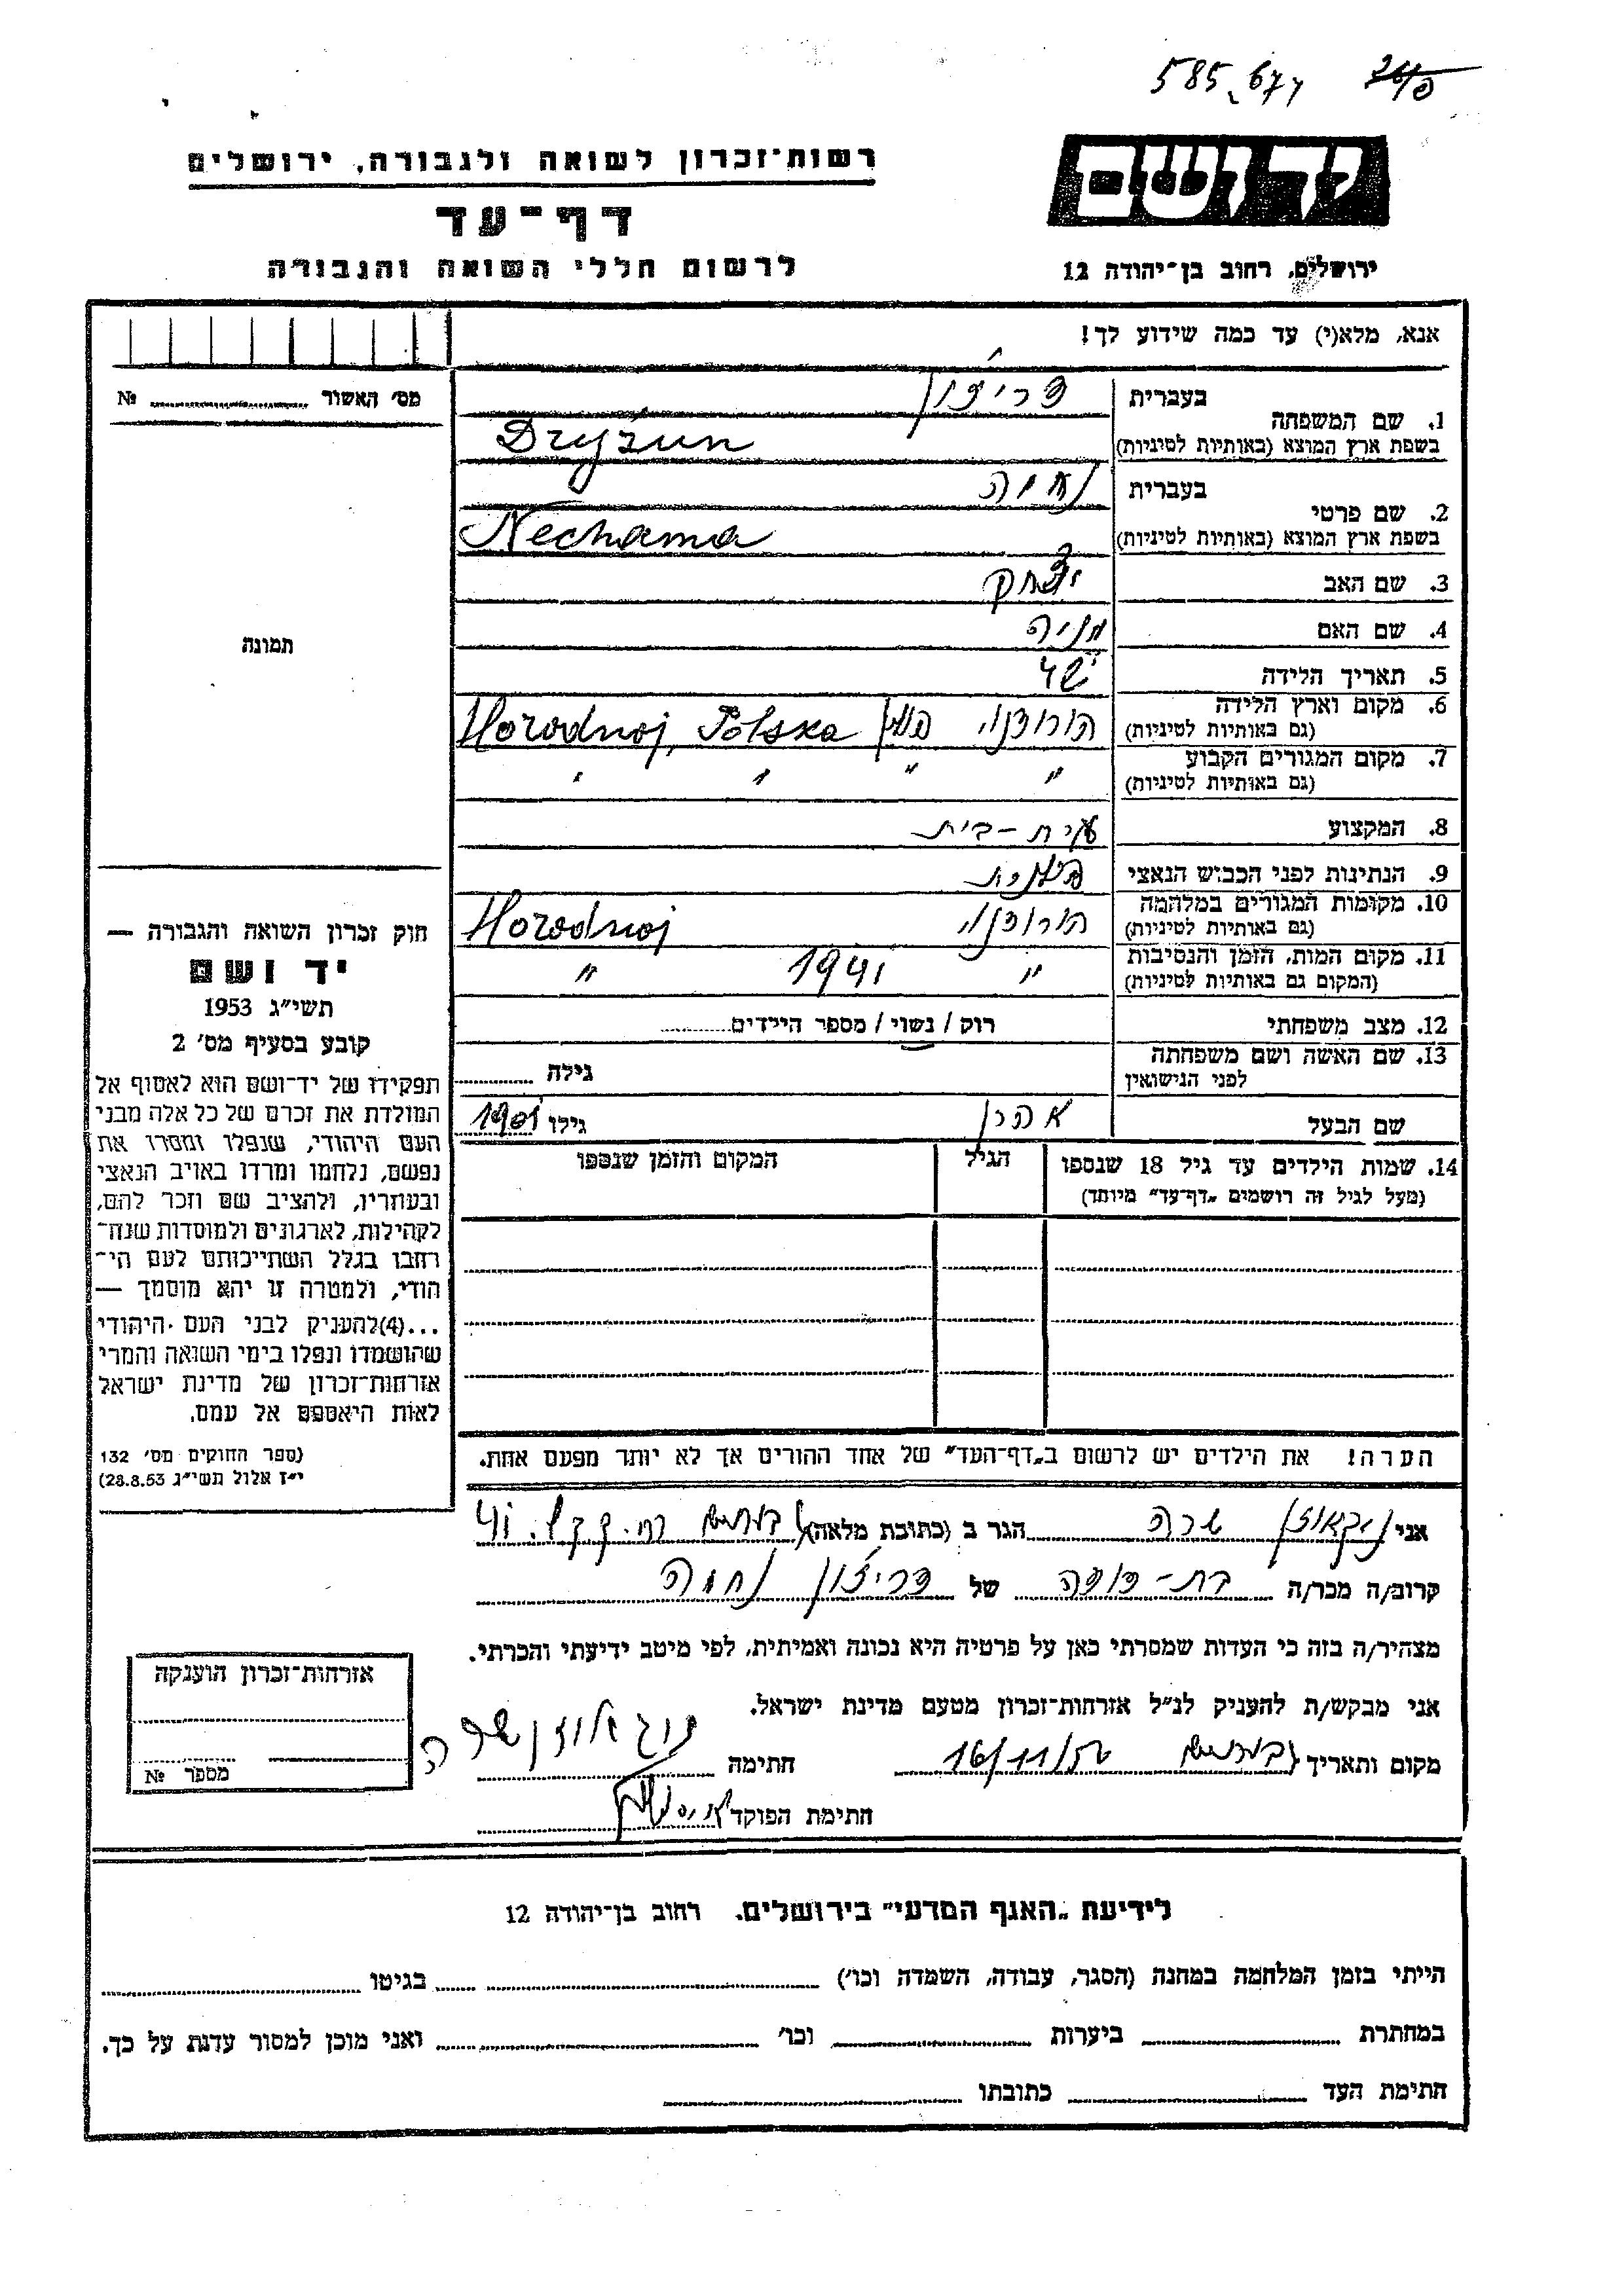 585,677
יד ושם
רשות־זכרון לשואה ולגבורה, ירושלים
דף־עד
לרשום חללי השואה והגבורה
ירושלים, רחוב בן־יהודה 12
אנא, מלא(י) עד כמה שידוע לך!
מס׳ האשור № 
1. שם המשפחה
בעברית דריז׳ון
בשפת ארץ המוצא (באותיות לטיניות) Dryżun
2. שם פרטי
בעברית נחמה
בשפת ארץ המוצא (באותיות לטיניות) Nechama
3. שם האב יצחק
4. שם האם
5. תאריך הלידה
6. מקום וארץ הלידה
(גם באותיות לטיניות) הורודנוי פולין Horodnoj, Polska
7. מקום המגורים הקבוע
(גם באותיות לטיניות) " " " "
8. המקצוע עקרת-בית
9. הנתינות לפני הכבוש הנאצי פולנית
10. מקומות המגורים במלחמה
(גם באותיות לטיניות) הורודנוי Horodnoj
11. מקום המות, הזמן והנסיבות
(המקום גם באותיות לטיניות) " 1941 "
12. מצב משפחתי רוק / נשוי / מספר הילדים
13. שם האשה ושם משפחתה
לפני הנישואין גילה
שם הבעל אהרן גילו 1901
14. שמות הילדים עד גיל 18 שנספו הגיל המקום והזמן שנספו
(מעל לגיל זה רושמים „דף־עד” מיוחד)
הערה! את הילדים יש לרשום ב„דף־העד” של אחד ההורים אך לא יותר מפעם אחת.
תמונה
חוק זכרון השואה והגבורה —
יד ושם
תשי״ג 1953
קובע בסעיף מס׳ 2
תפקידו של יד־ושם הוא לאסוף אל
המולדת את זכרם של כל אלה מבני
העם היהודי, שנפלו ומסרו את
נפשם, נלחמו ומרדו באויב הנאצי
ובעוזריו, ולהציב שם וזכר להם,
לקהילות, לארגונים ולמוסדות שנח־
רבו בגלל השתייכותם לעם הי־
הודי, ולמטרה זו יהא מוסמך —
...(4)להעניק לבני העם היהודי
שהושמדו ונפלו בימי השואה והמרי
אזרחות־זכרון של מדינת ישראל
לאות היאספם אל עמם.
(ספר החוקים מס׳ 132
י״ז אלול תשי״ג 28.8.53)
אני שרה הגר ב (כתובת מלאה)
קרוב/ה מכר/ה בת-דודה של דריז׳ון נחמה
מצהיר/ה בזה כי העדות שמסרתי כאן על פרטיה היא נכונה ואמיתית, לפי מיטב ידיעתי והכרתי.
אני מבקש/ת להעניק לנ״ל אזרחות־זכרון מטעם מדינת ישראל.
מקום ותאריך 16/11/56 חתימה שרה
חתימת הפוקד
אזרחות־זכרון הוענקה
מספר №
לידיעת „האגף המדעי” בירושלים. רחוב בן־יהודה 12
הייתי בזמן המלחמה במחנה (הסגר, עבודה, השמדה וכו׳) בגיטו
במחתרת ביערות וכו׳ ואני מוכן למסור עדות על כך.
חתימת העד כתובתו